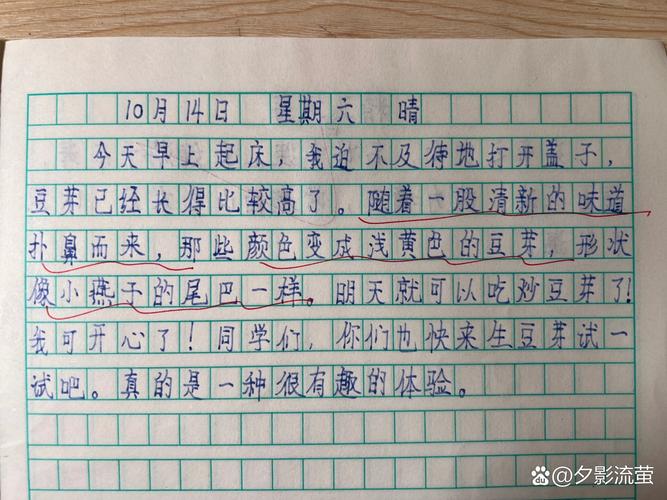 10月14日 星期六 晴
今天早上起床，我迫不及待地打开盖子，
豆芽已经长得比较高了。随着一股清新的味道
扑鼻而来，那些颜色变成浅黄色的豆芽，形状
像小燕子的尾巴一样。明天就可以吃炒豆芽了！
我可开心了！同学们，你们也快来生豆芽试一
试吧。真的是一种很有趣的体验。
du夕影流萤